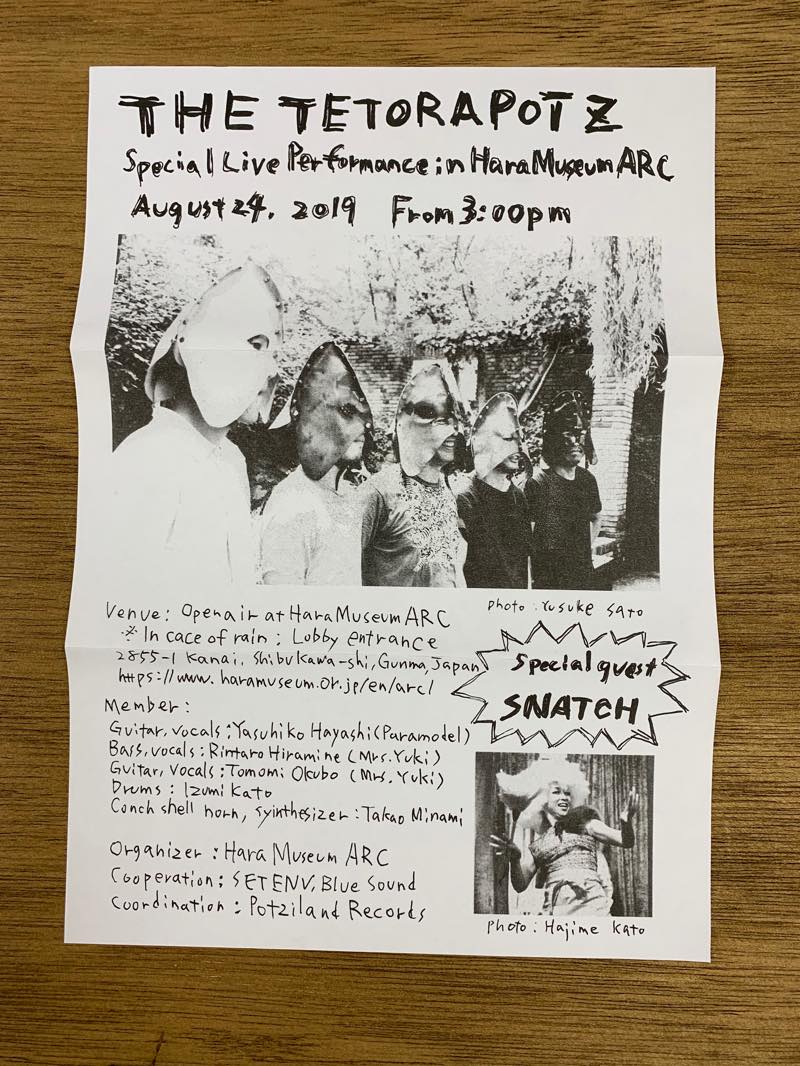 THE TETORAPOTZ
Special Live Performance in Hara Museum ARC
August 24, 2019 From 3:00pm
photo : Yusuke Sato
Venue : Open air at Hara Museum ARC
※ In cace of rain : Lobby entrance
2855-1 Kanai, Shibukawa-shi, Gunma, Japan
https://www.haramuseum.or.jp/en/arc/
Special guest
SNATCH
Member :
Guitar, vocals : Yasuhiko Hayashi (Paramodel)
Bass, vocals : Rintaro Hiramine (Mrs. Yuki)
Guitar, Vocals : Tomomi Okubo (Mrs. Yuki)
Drums : Izumi Kato
Conch shell horn, syinthesizer : Takao Minami
Organizer : Hara Museum ARC
Cooperation ; SETENV, Blue Sound
Coordination : Potziland Records
photo : Hajime Kato